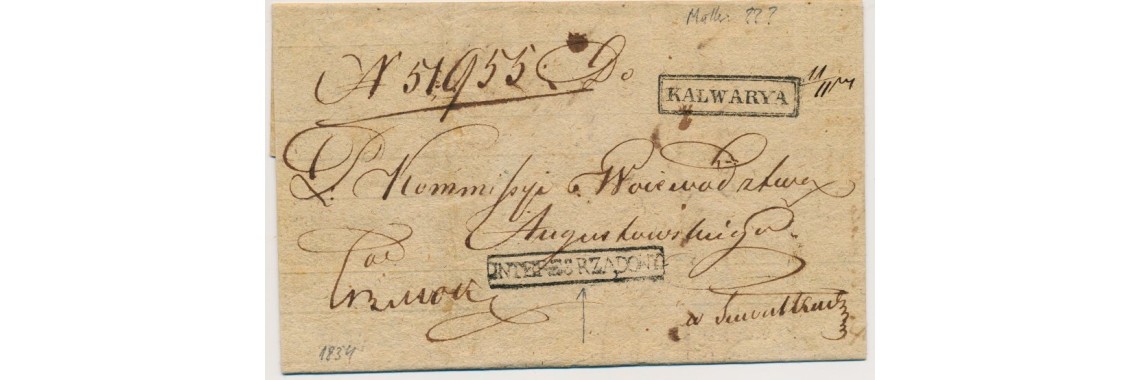 N 51,955. Do
KALWARYA
11/11
P. Kommissyi Woiewództwa
Augustowskiego
od
INTERES RZĄDOWY
w Suwałkach
1834